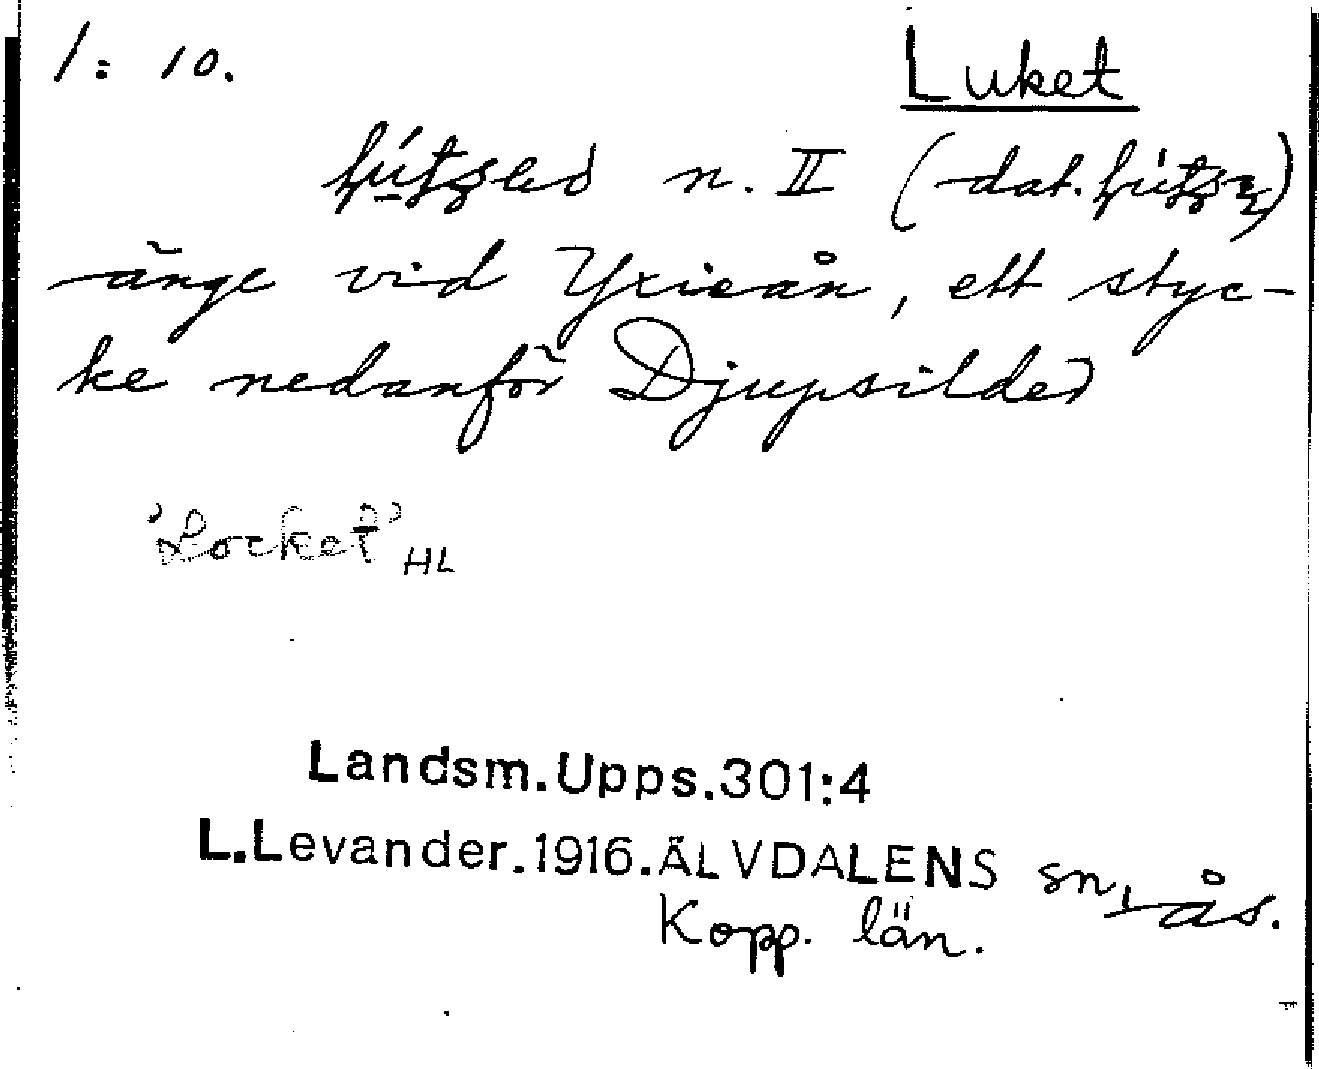 1: 10.
Luket
n. II (dat.
änge vid Yxieån, ett styc-
ke nedanför Djupsilded
'Locket' HL
Landsm.Upps.301:4
L.Levander.1916.ÄLVDALENS sn, ås.
Kopp. län.